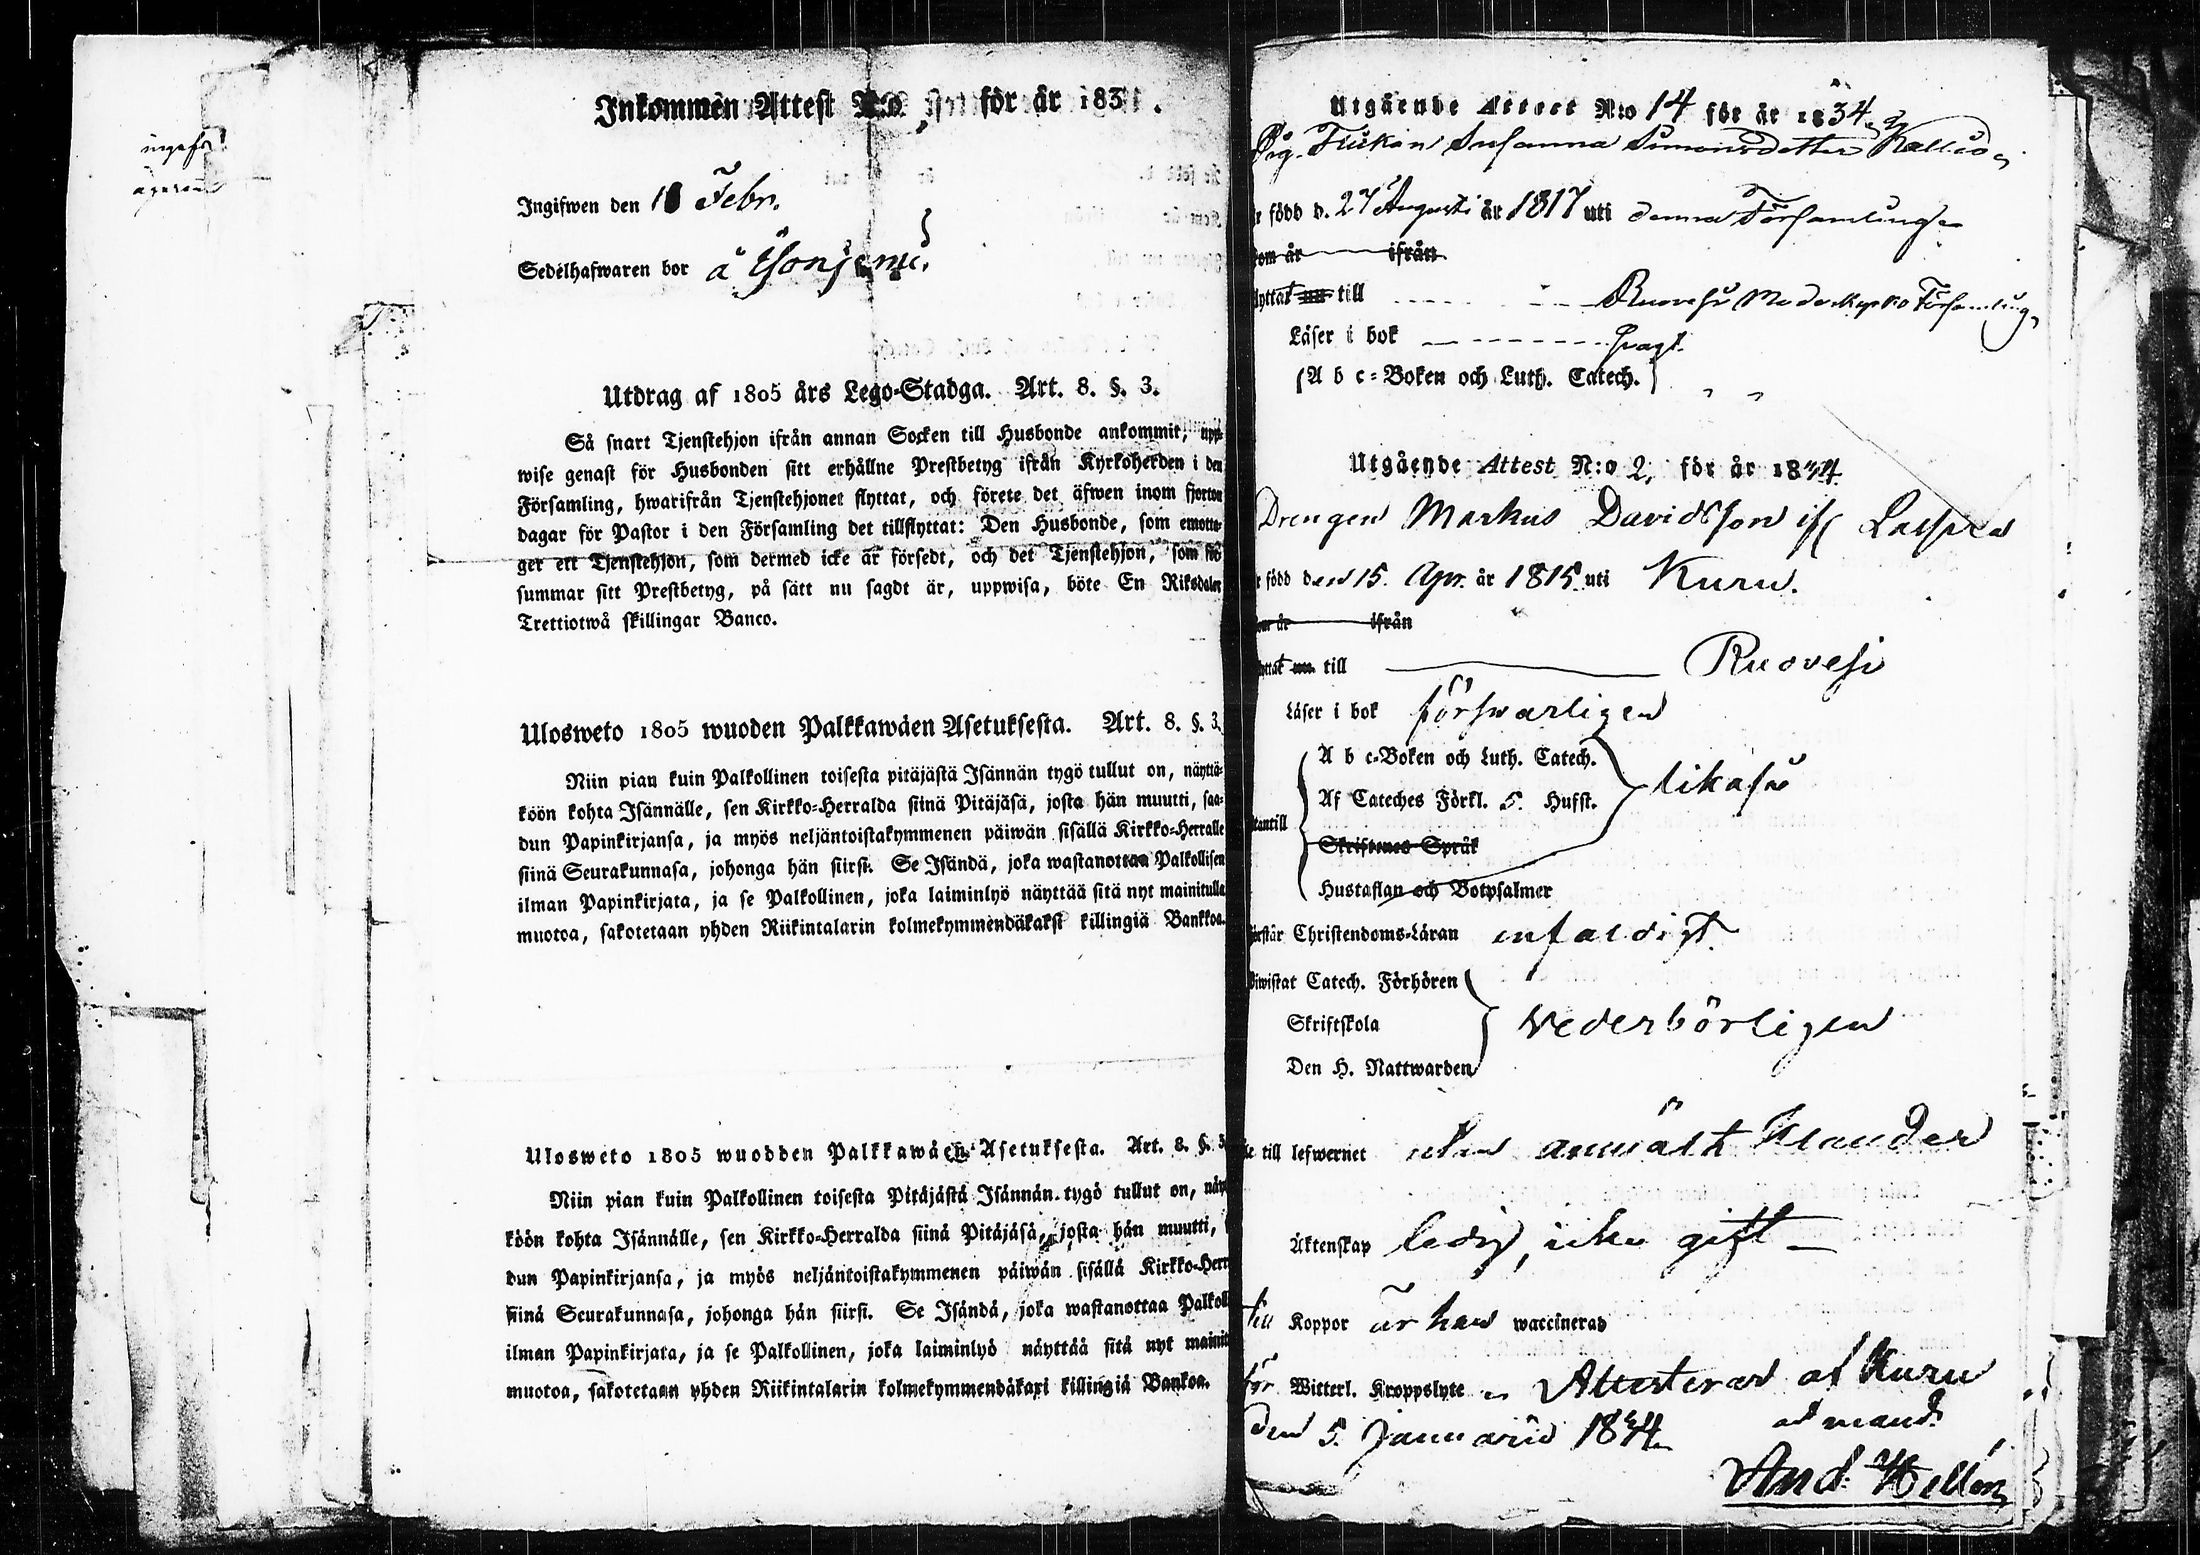 Inkommen Attest N:o för år 183 .
Ingifwen den 18 Febr.
Sedelhafwaren bor å
Utdrag af 1805 års Lego-Stadga. Art. 8. §. 3.
Så snart Tjenstehjon ifrån annan Socken till Husbonde ankommit, upp-
wise genast för Husbonden sitt erhållne Prestbetyg ifrån Kyrkoherden i den
Församling, hwarifrån Tjenstehjonet flyttat, och förete det äfwen inom fjorton
dagar för Pastor i den Församling det tillflyttat: Den Husbonde, som emotta-
ger ett Tjenstehjon, som dermed icke är försedt, och det Tjenstehjon, som för-
summar sitt Prestbetyg, på sätt nu sagdt är, uppwisa, böte En Riksdaler
Trettiotwå skillingar Banco.
Ulosweto 1805 wuoden Palkkawäen Asetuksesta. Art. 8. §. 3.
Niin pian kuin Palkollinen toisesta pitäjästä Isännän tygö tullut on, näyttä-
köön kohta Isännälle, sen Kirkko-Herralda siinä Pitäjäsä, josta hän muutti, saa-
dun Papinkirjansa, ja myös neljäntoistakymmenen päiwän sisällä Kirkko-Herralle
siinä Seurakunnasa, johonga hän siirsi. Se Isändä, joka wastanottaa Palkollisen
ilman Papinkirjata, ja se Palkollinen, joka laiminlyö näyttää sitä nyt mainitulla
muotoa, sakotetaan yhden Riikintalarin kolmekymmendäkaksi killingiä Bankkoa.
Ulosweto 1805 wuodden Palkkawäen Asetuksesta. Art. 8. §. 3
Niin pian kuin Palkollinen toisesta Pitäjästä Isännän tygö tullut on, näy
köön kohta Isännälle, sen Kirkko-Herralda siinä Pitäjäsä, josta hän muutti,
dun Papinkirjansa, ja myös neljäntoistakymmenen päiwän sisällä Kirkko-Herr
siinä Seurakunnasa, johonga hän siirsi. Se Isändä, joka wastanottaa Palkoll
ilman Papinkirjata, ja se Palkollinen, joka laiminlyö näyttää sitä nyt mainit
muotoa, sakotetaan yhden Riikintalarin kolmekymmendäkaxi killingiä Bankoa.
Utgående Attest N:o 14 för år 1834
Pig. Flickan Susanna Simonsdotter
r född d. 27 Augusti år 1817 uti denna Församling
om år ifrån
lyttat nu till Ruovesi Moderkyrko Församling,
Läser i bok svagt.
A b c-Boken och Luth. Catech. " "
Utgående Attest N:o 2, för år 1834
Drengen Markus Davidsson if
r född den 15. Apr. år 1815. uti Kuru.
om år ifrån
yttat nu till Ruovesi
Läser i bok försvarligen
A b c-Boken och Luth. Catech.
Af Cateches Förkl. 5. Hufst. likaså
tantill
Skriftenes Språk
Hustaflan och Botpsalmer
örstår Christendoms-Läran enfaldigt.
biwistat Catech. Förhören
Skriftskola vederbörligen
Den H. Nattwarden
de till lefwernet utan anmält klander
Äktenskap ledig, icke gift
till Koppor är han waccinerad
för Witterl. Kroppslyte Attesterad af Kuru
den 5. Januarii 1834
ad mand.
And. Hellén